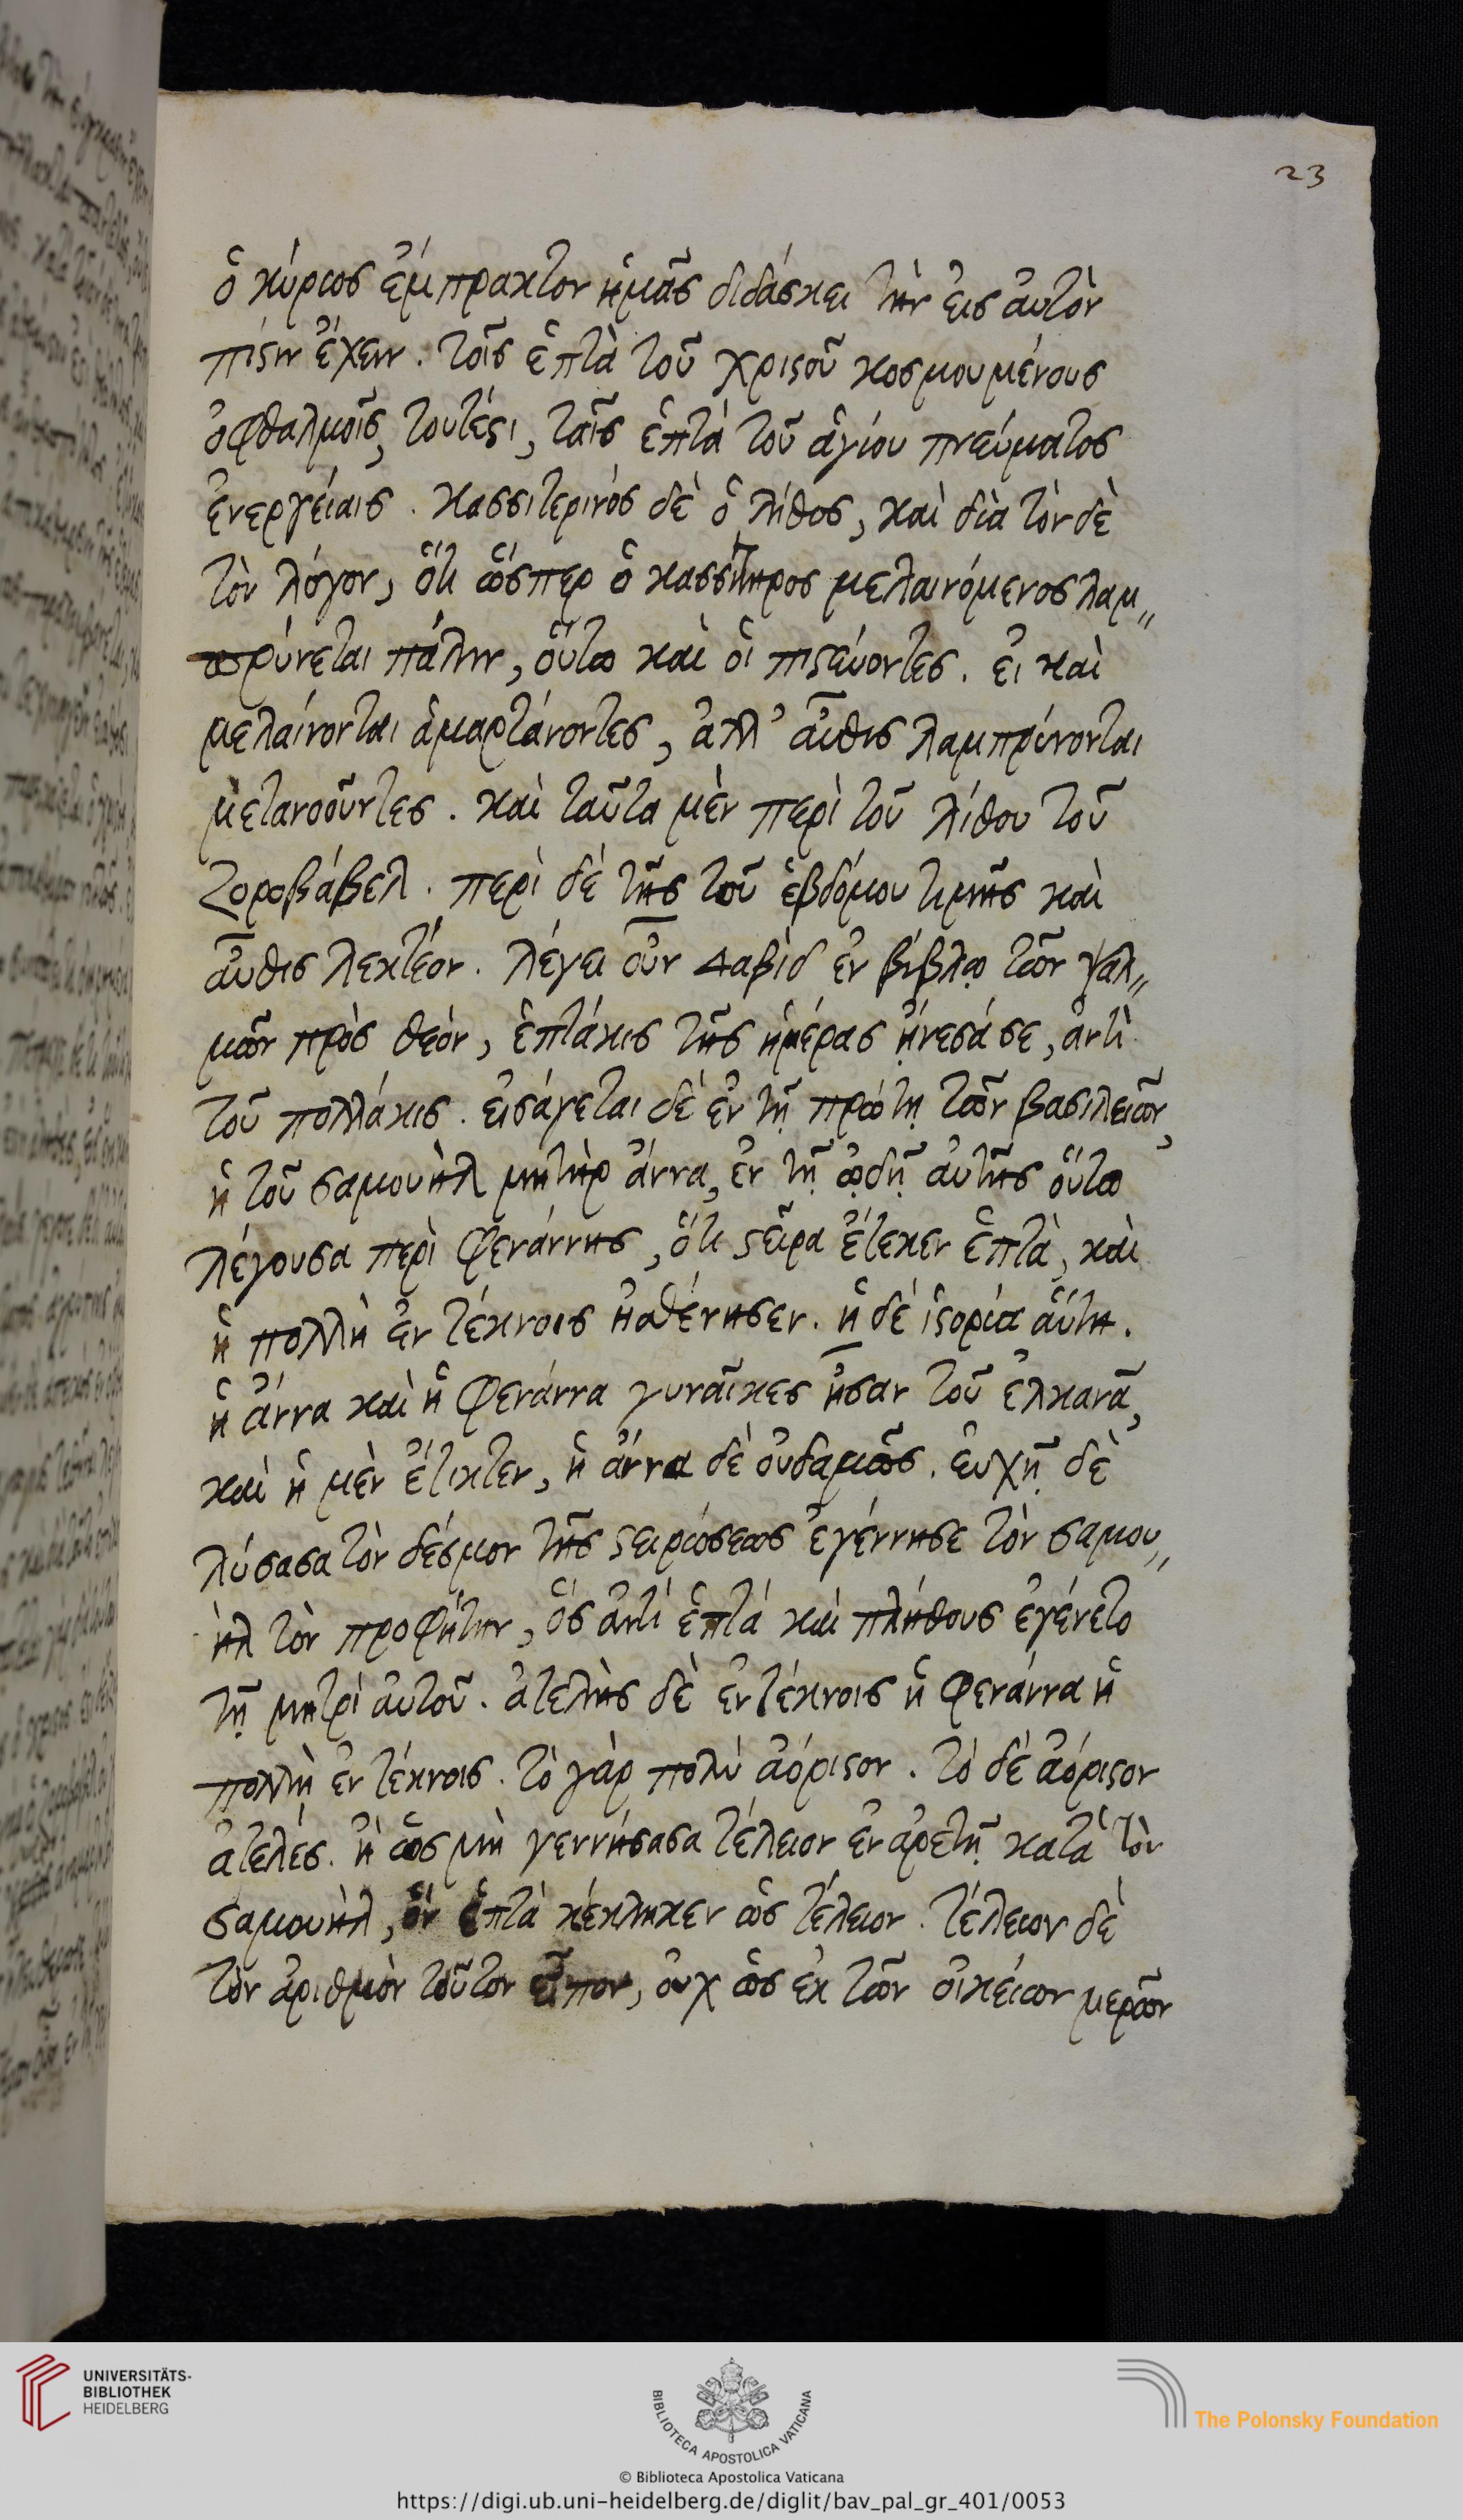 23
ὁ κύριος ἔμπρακτον ἡμᾶς διδάσκει τὴν εἰς αὐτὸν
πίςιν ἔχειν. τοῖς ἑπτὰ τοῦ χριςοῦ κοσμουμένους
ὀφθαλμοῖς, τουτέςι, ταῖς ἑπτὰ τοῦ ἁγίου πνεύματος
ἐνεργείαις. κασσιτερινός δὲ ὁ λίθος, καὶ διὰ τὸν δὲ
τὸν λόγον, ὅτι ὥσπερ ὁ κασσίτηρος μελαινόμενος λαμ〃
πρύνεται πάλιν, οὕτω καὶ οἱ πιςεύοντες. εἰ καὶ
μελαίνονται ἁμαρτάνοντες, ἀλλ᾽ αὖθις λαμπρύνονται
μετανοοῦντες. καὶ ταῦτα μὲν περὶ τοῦ λίθου τοῦ
ζοροβάβελ. περὶ δὲ τῆς τοῦ ἑβδόμου τιμῆς καὶ
αὖθις λεκτέον. λέγει οὖν Δαβὶδ ἐν βίβλῳ τῶν ψαλ〃
μῶν πρὸς θεόν, ἑπτάκις τῆς ἡμέρας ᾔνεσά σε, ἀντὶ
τοῦ πολλάκις. εἰσάγεται δὲ ἐν τῇ πρώτῃ τῶν βασιλειῶν,
ἡ τοῦ σαμουὴλ μητὴρ ἄννα, ἐν τῇ ᾠδῇ αὐτῆς οὕτω
λέγουσα περὶ φενάννης, ὅτι ςεῖρα ἔτεκεν ἑπτὰ, καὶ
ἡ πολλὴ ἐν τέκνοις ἠσθένησεν. ἡ δὲ ἱςορία αὕτη.
ἡ ἄννα καὶ ἡ φενάννα γυναῖκες ἦσαν τοῦ ἐλκανᾶ,
καὶ ἡ μὲν ἔτικτεν, ἡ ἄννα δὲ οὐδαμῶς. εὐχῇ δὲ
λύσασα τὸν δέσμον τῆς ςειρώσεως ἐγέννησε τὸν σαμου〃
ὴλ τὸν προφήτην, ὃς ἀντὶ ἑπτὰ καὶ πλήθους ἐγένετο
τῇ μητρὶ αὐτοῦ. ἀτελὴς δὲ ἐν τέκνοις ἡ φενάννα ἡ
πολλὴ ἐν τέκνοις. τὸ γὰρ πολὺ ἀόριςον. τὸ δὲ ἀόριςον
ἀτελές. ἢ ὡς μὴ γεννήσασα τέλειον ἐν ἀρετῇ κατὰ τὸν
σαμουὴλ, ὃν ἑπτὰ κέκληκεν ὡς τέλειον. τέλειον δὲ
τὸν ἀριθμὸν τοῦτον εἶπον, οὐχ ὡς ἐκ τῶν οἰκείων μερῶν
UNIVERSITÄTS-
BIBLIOTHEK
HEIDELBERG
BIBLIOTECA APOSTOLICA VATICANA
The Polonsky Foundation
© Biblioteca Apostolica Vaticana
https://digi.ub.uni-heidelberg.de/diglit/bav_pal_gr_401/0053